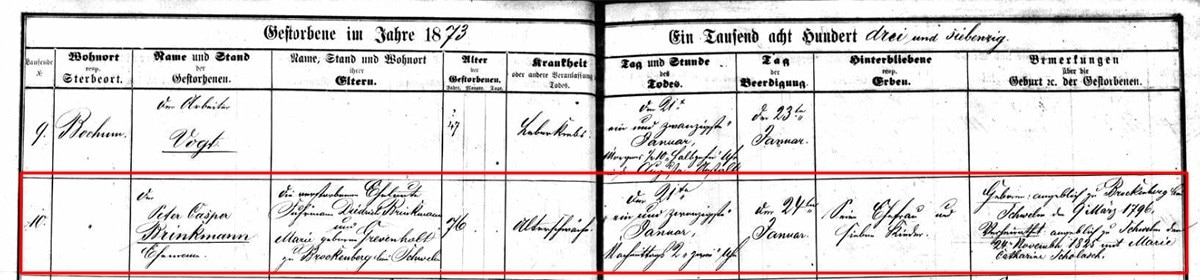 Gestorbene im Jahre 1873
Ein Tausend acht Hundert drei und siebenzig.
Laufende №
Wohnort resp. Sterbeort.
Name und Stand der Gestorbenen.
Name, Stand und Wohnort ihrer Eltern.
Alter der Gestorbenen. Jahre. Monate. Tage.
Krankheit oder andere Veranlassung des Todes.
Tag und Stunde des Todes.
Tag der Beerdigung.
Hinterbliebene resp. Erben.
Bemerkungen über die Geburt ꝛc. der Gestorbenen.
9.
Bochum.
der Arbeiter
Vogt
47
Leberkrebs.
den 21te
ein und zwanzigste
Januar,
Morgens
Uhr
den 23ten
Januar.
10.
"
der
Peter Caspar
Brinkmann
Ehemann
die verstorbenen Eheleute
Diedrich Brinkmann
und
Marie geborene Grevenholt
zu Brockenberg bei Schwelm
76
Altersschwäche
den 21te
ein und zwanzigste
Januar,
Nachmittags 2, zwei Uhr
den 24ten
Januar.
Seine Ehefrau und
sieben Kinder.
Geboren angeblich zu Brockenberg bei
Schwelm den 9 März 1796,
Verheirathet angeblich zu Schwelm den
24 November 1825 mit Marie
Catharine Scholasch.